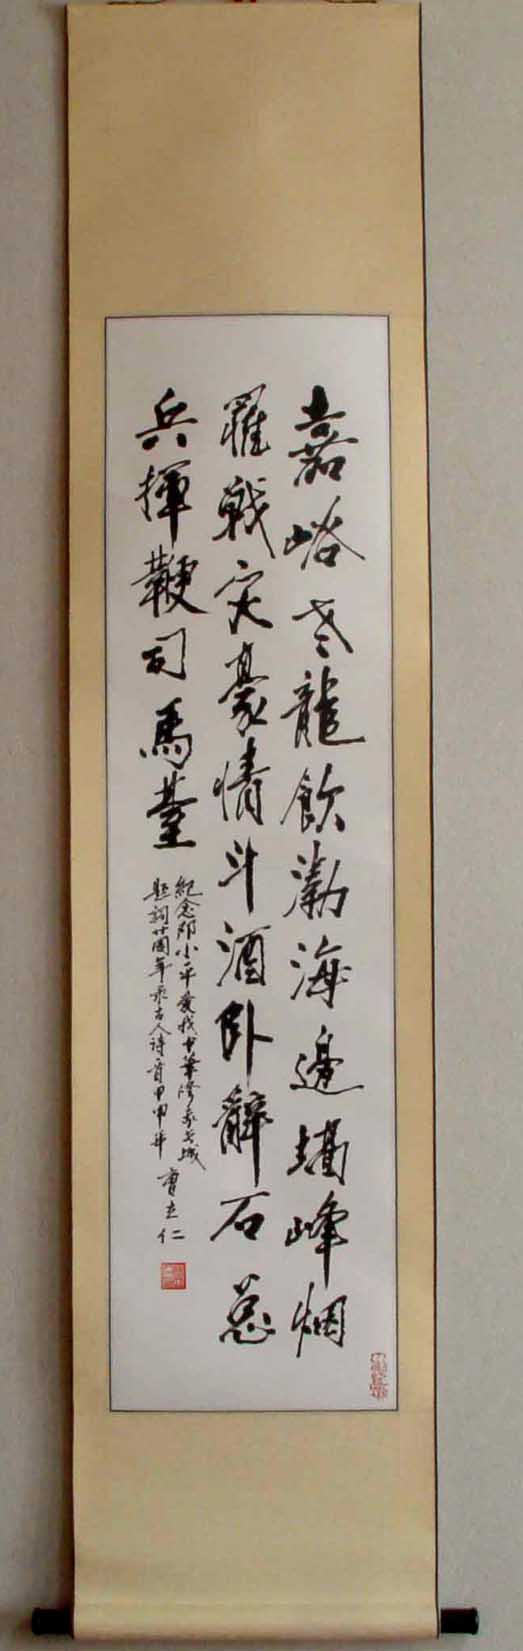 嘉峪老龍飲渤海邊墻峰烟
戰灾豪情斗酒卧石
兵揮鞭司馬臺
紀念邓小平愛我中華修我長城
題詞廿周年录古人诗一首甲申年
曹立仁